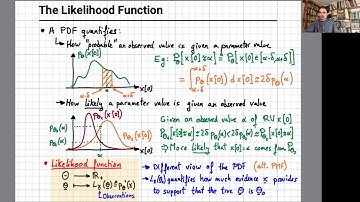 The Likelihood Function
• A PDF quantifies:
↳ How "probable" an observed value is given a parameter value
pθ(x[0])
α-δ α α+δ x[0]
→ How likely a parameter value is given an observed value
pθ₁(x[0])
pθ₂(x[0])
pθ₂(α)
pθ₁(α)
α x[0]
Given an observed value α of RV x[0]
⇒ More likely that x[0]=α comes from
• Likelihood function
Θ → ℝ₊
θ → Lx(θ) ≜ pθ(x)
↳ Observations
→ Different view of the PDF (alt. PMF)
→ Lx(θ₀) quantifies how much evidence x provides
to support that the true θ is θ₀